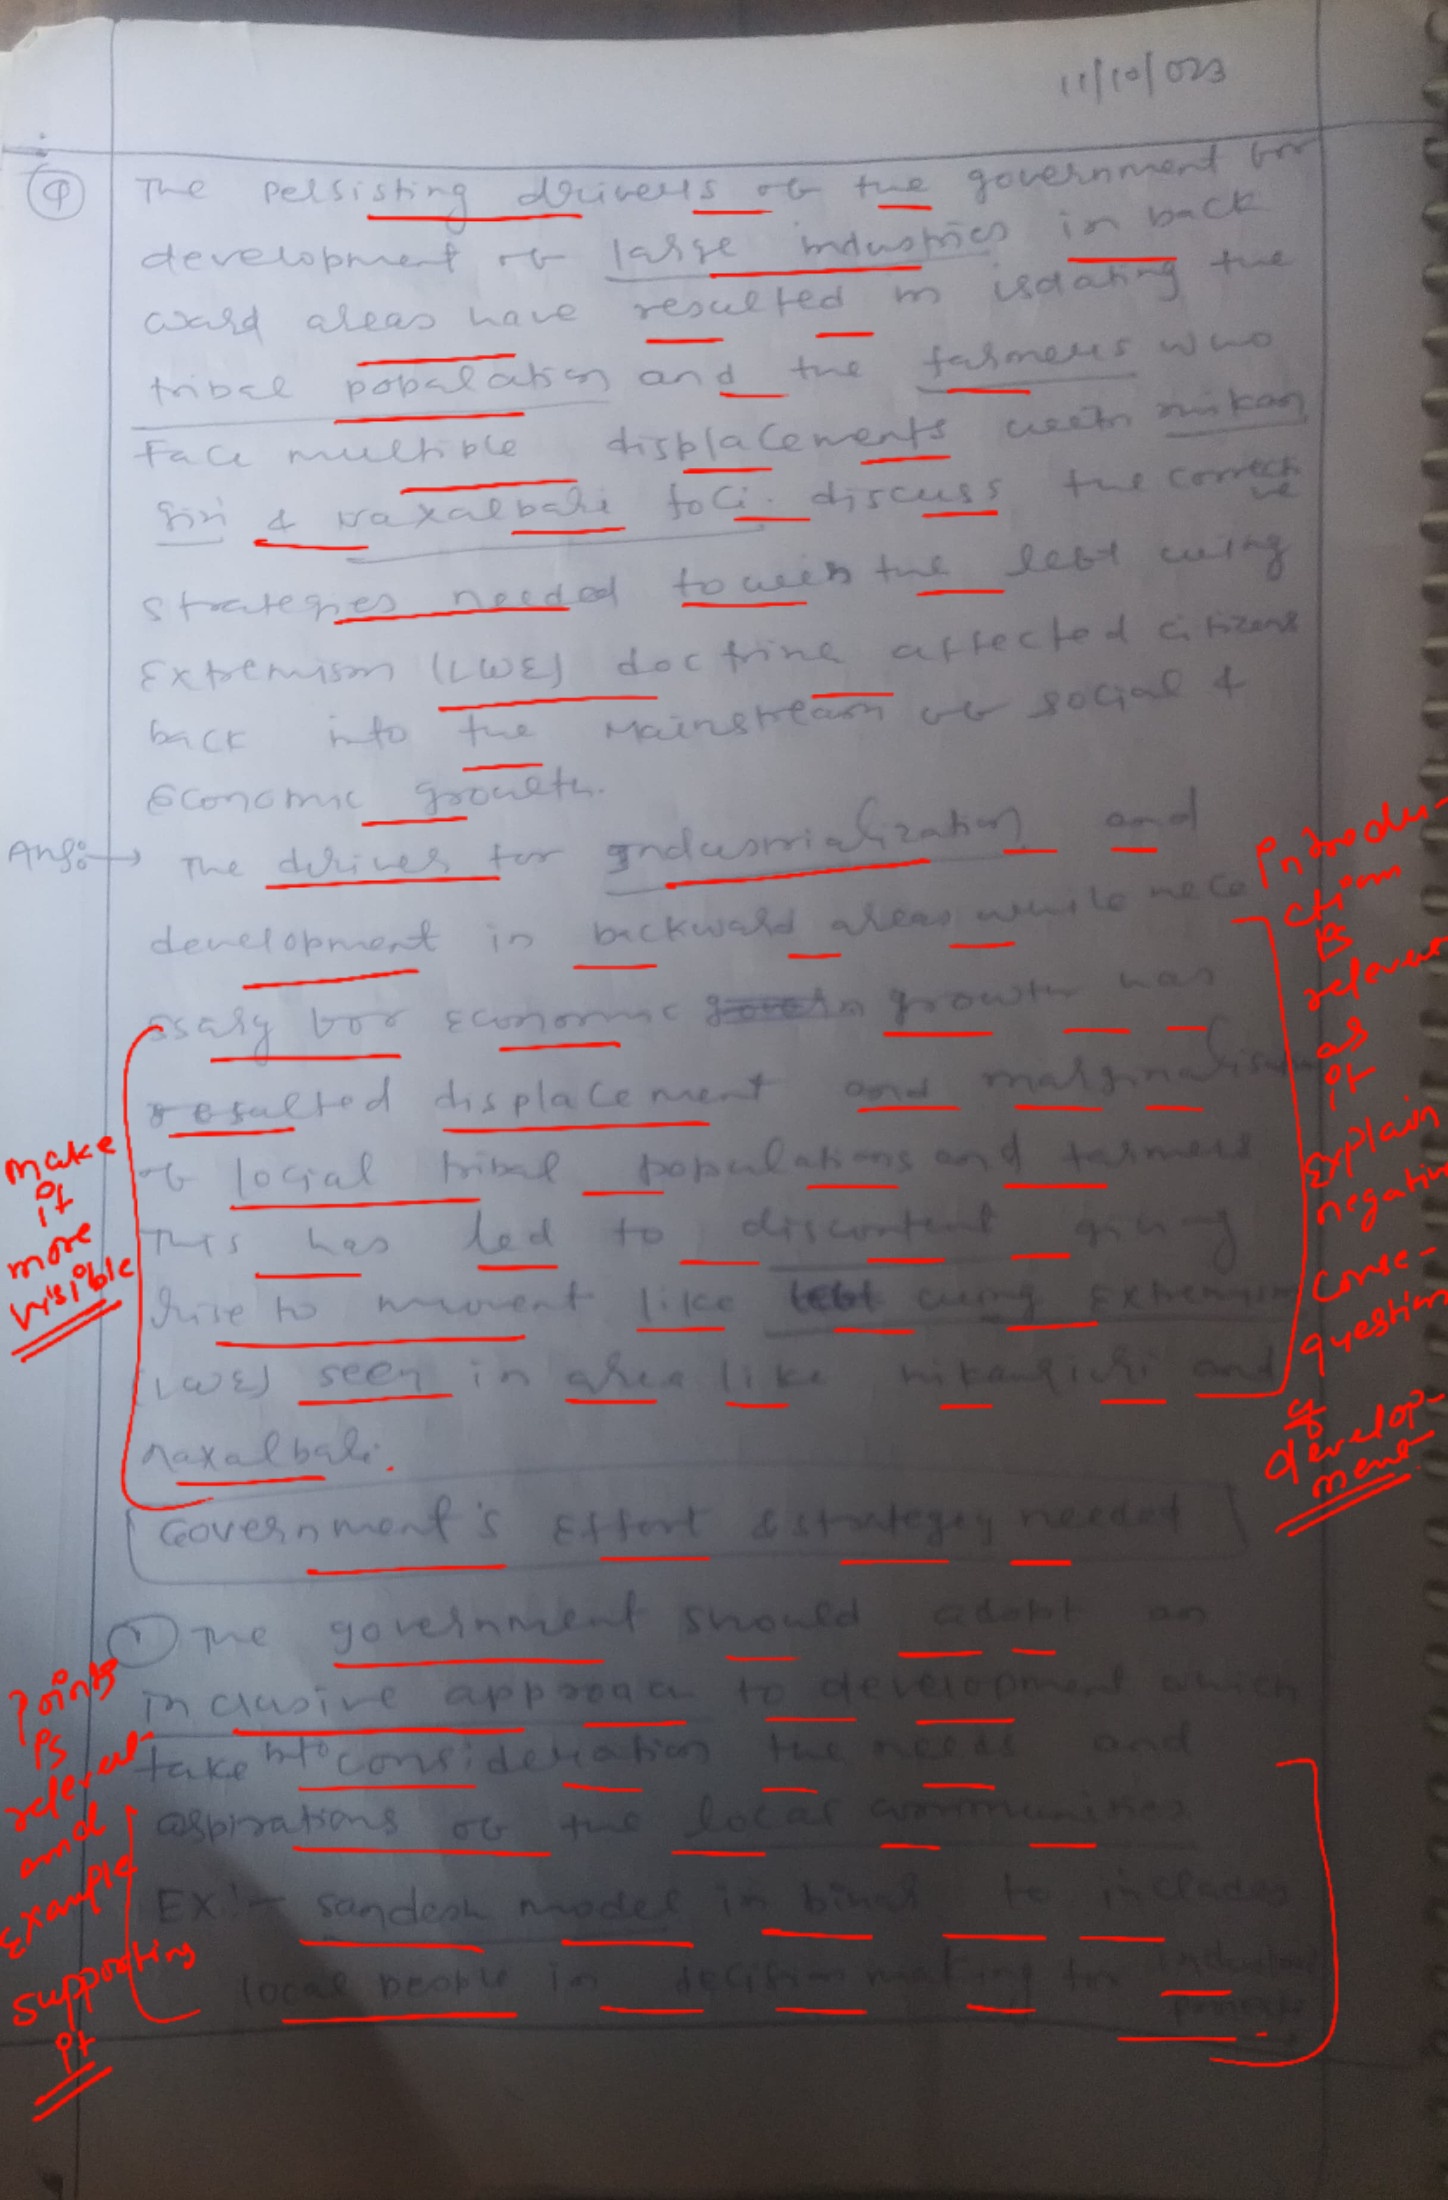 11/10/023
Q
The persisting drivers of the government for
development of large industries in back
ward areas have resulted in isolating the
tribal population and the farmers who
Face multiple displacements with malkan
giri & Naxalbari foci. discuss the correcti
ve
strategies needed to win the left wing
Extremism (LWE) doctrine affected citizens
back into the mainstream of social &
Economic growth.
Ans:→ The drives for Industrialization and
development in backward areas while nece
ssary for economic growth has
resulted displacement and marginalisation
of local tribal populations and farmers
This has led to discontent giving
rise to movent like left wing Extremism
(LWE) seen in area like and
naxalbari.
Government's Effort & strategy needed
1 The government should adopt an
inclusive approach to development which
take into consideration the needs and
aspirations of the local communities
EX:- sandesh model in bihar to includes
local people in decision making for industrial
projects
make
it
more
visible
Introdu-
ction
is
relevant
as
it
Explain
negative
Conse-
question
of
develop-
ment
Points
is
releval
and
Example
supporting
it